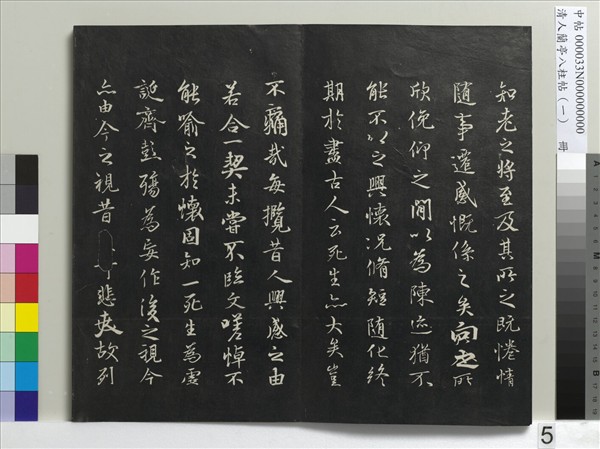 知老之將至及其所之既惓情
随事遷感慨係之矣向之所
欣俛仰之間以為陳迹猶不
能不以之興懷況脩短随化終
期於盡古人云死生亦大矣豈
不痛哉每攬昔人興感之由
若合一契未嘗不臨文嗟悼不
能喻之於懷固知一死生為虛
誕齊彭殤為妄作後之視今
亦由今之視昔悲夫故列
中帖 000033N000000000
清人蘭亭八柱帖（一） 冊
5